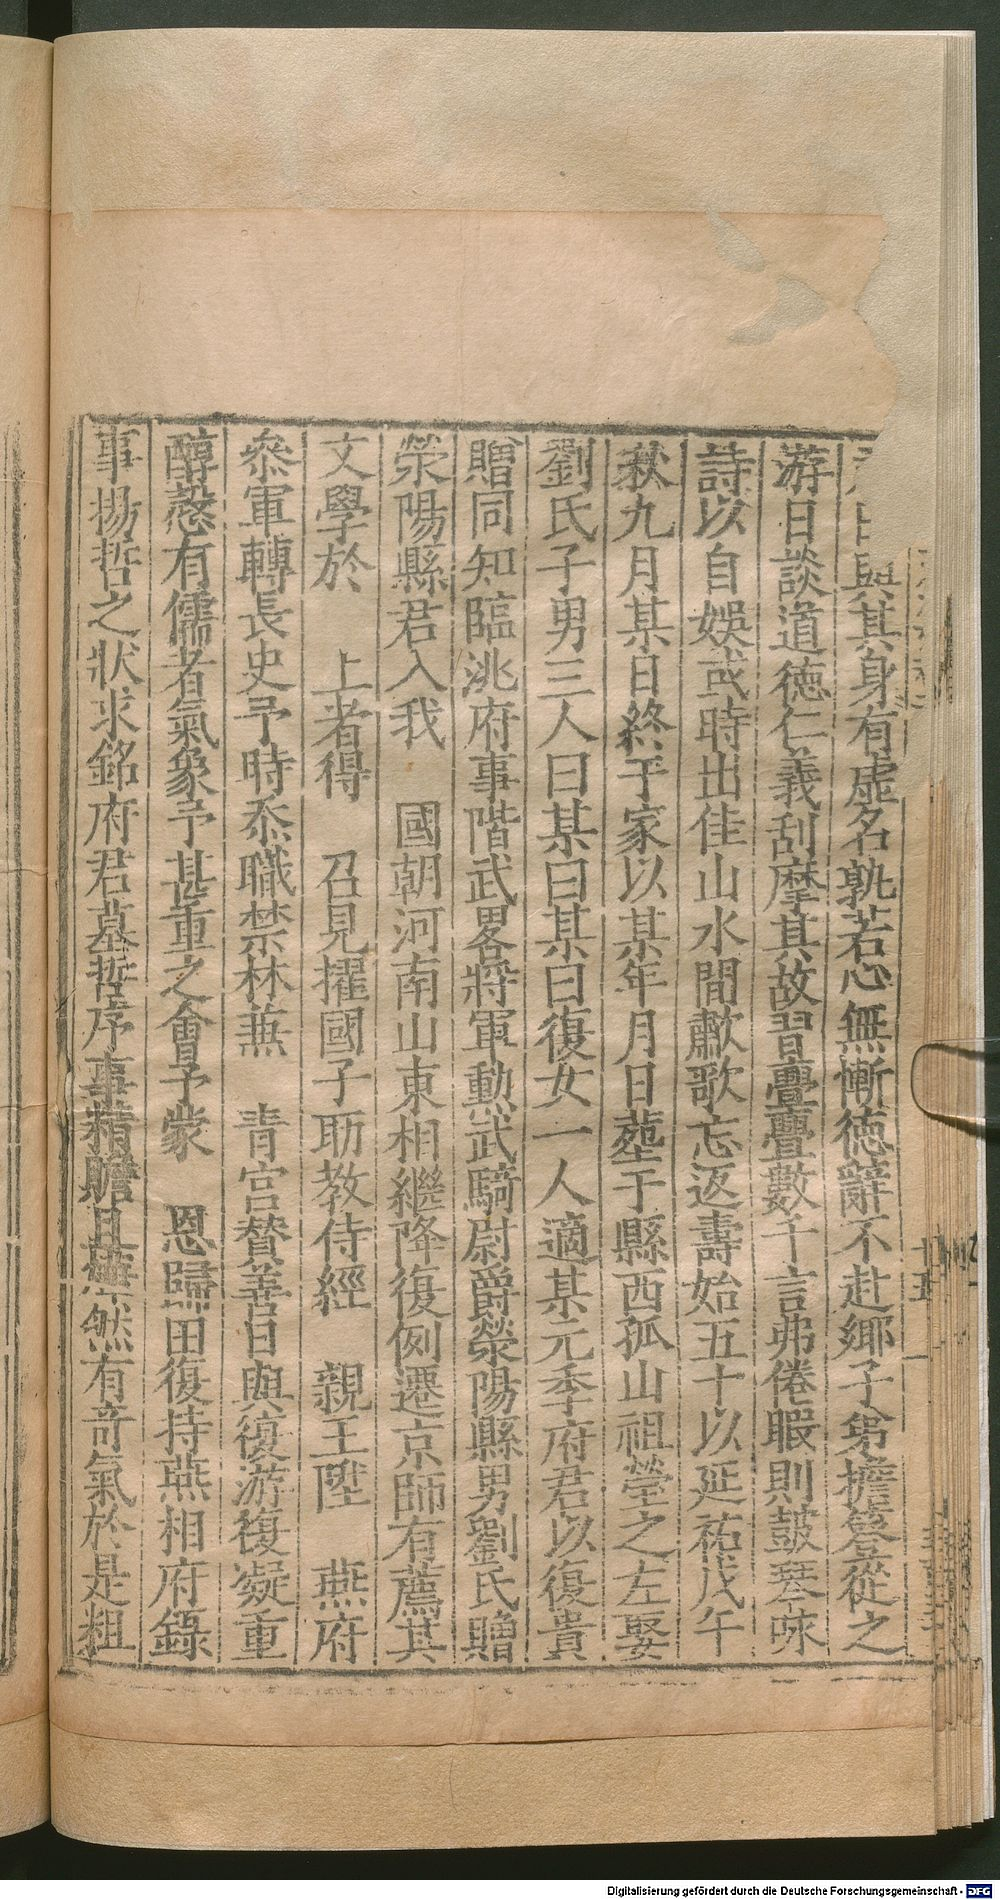 與其身有虛名孰若心無慚德辭不赴鄉子弟擔簦從之
游日談道德仁義刮摩其故習亹亹數千言弗倦暇則鼓琴咏
詩以自娛或時出佳山水間歗歌忘返壽始五十以延祐戊午
秋九月某日終于家以某年月日塟于縣西孤山祖塋之左娶
劉氏子男三人曰某曰某曰復女一人適某元季府君以復貴
贈同知臨洮府事階武畧將軍勳武騎尉爵滎陽縣男劉氏贈
滎陽縣君入我 國朝河南山東相繼降復例遷京師有薦其
文學於 上者得 召見擢國子助教侍經 親王陞 燕府
叅軍轉長史予時忝職禁林兼 青宮贊善日與復游復凝重
醇慤有儒者氣象予甚重之會予蒙 恩歸田復持燕相府錄
事揚哲之狀求銘府君墓哲序事精贍且有奇氣於是粗
十五
Digitalisierung gefördert durch die Deutsche Forschungsgemeinschaft - DFG